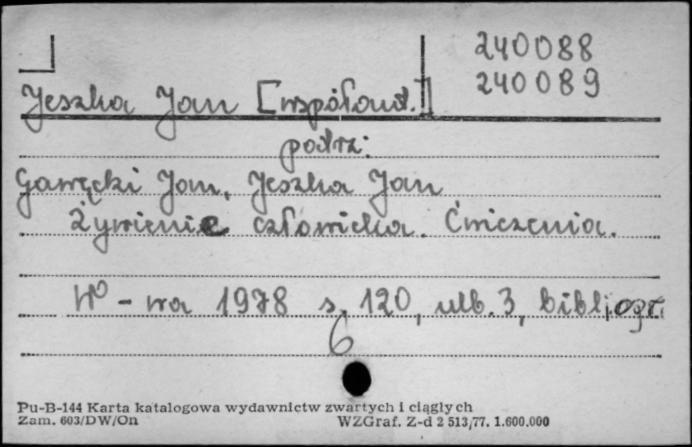 240088
240089
Jeszka Jan [współaut.]
patrz:
Gawęcki Jan, Jeszka Jan
Żywienie człowieka. Ćwiczenia.
W-wa 1978 s. 120, nlb. 3, bibliogr.
6
Pu-B-144 Karta katalogowa wydawnictw zwartych i ciągłych
Zam. 603/DW/On WZGraf. Z-d 2 513/77. 1.600.000